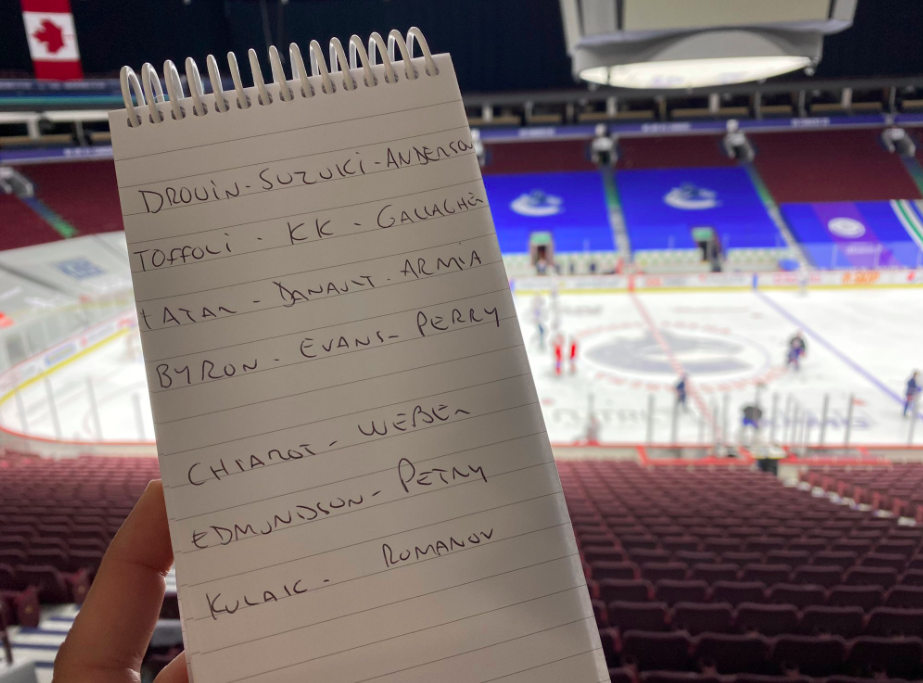 DROUIN - SUZUKI - ANDERSON
TOFFOLI - KK - GALLAGHER
tATAR - DANAULT - ARMIA
BYRON - EVANS - PERRY
CHIAROT - WEBER
EDMUNDSON - PETRY
KULAK - ROMANOV